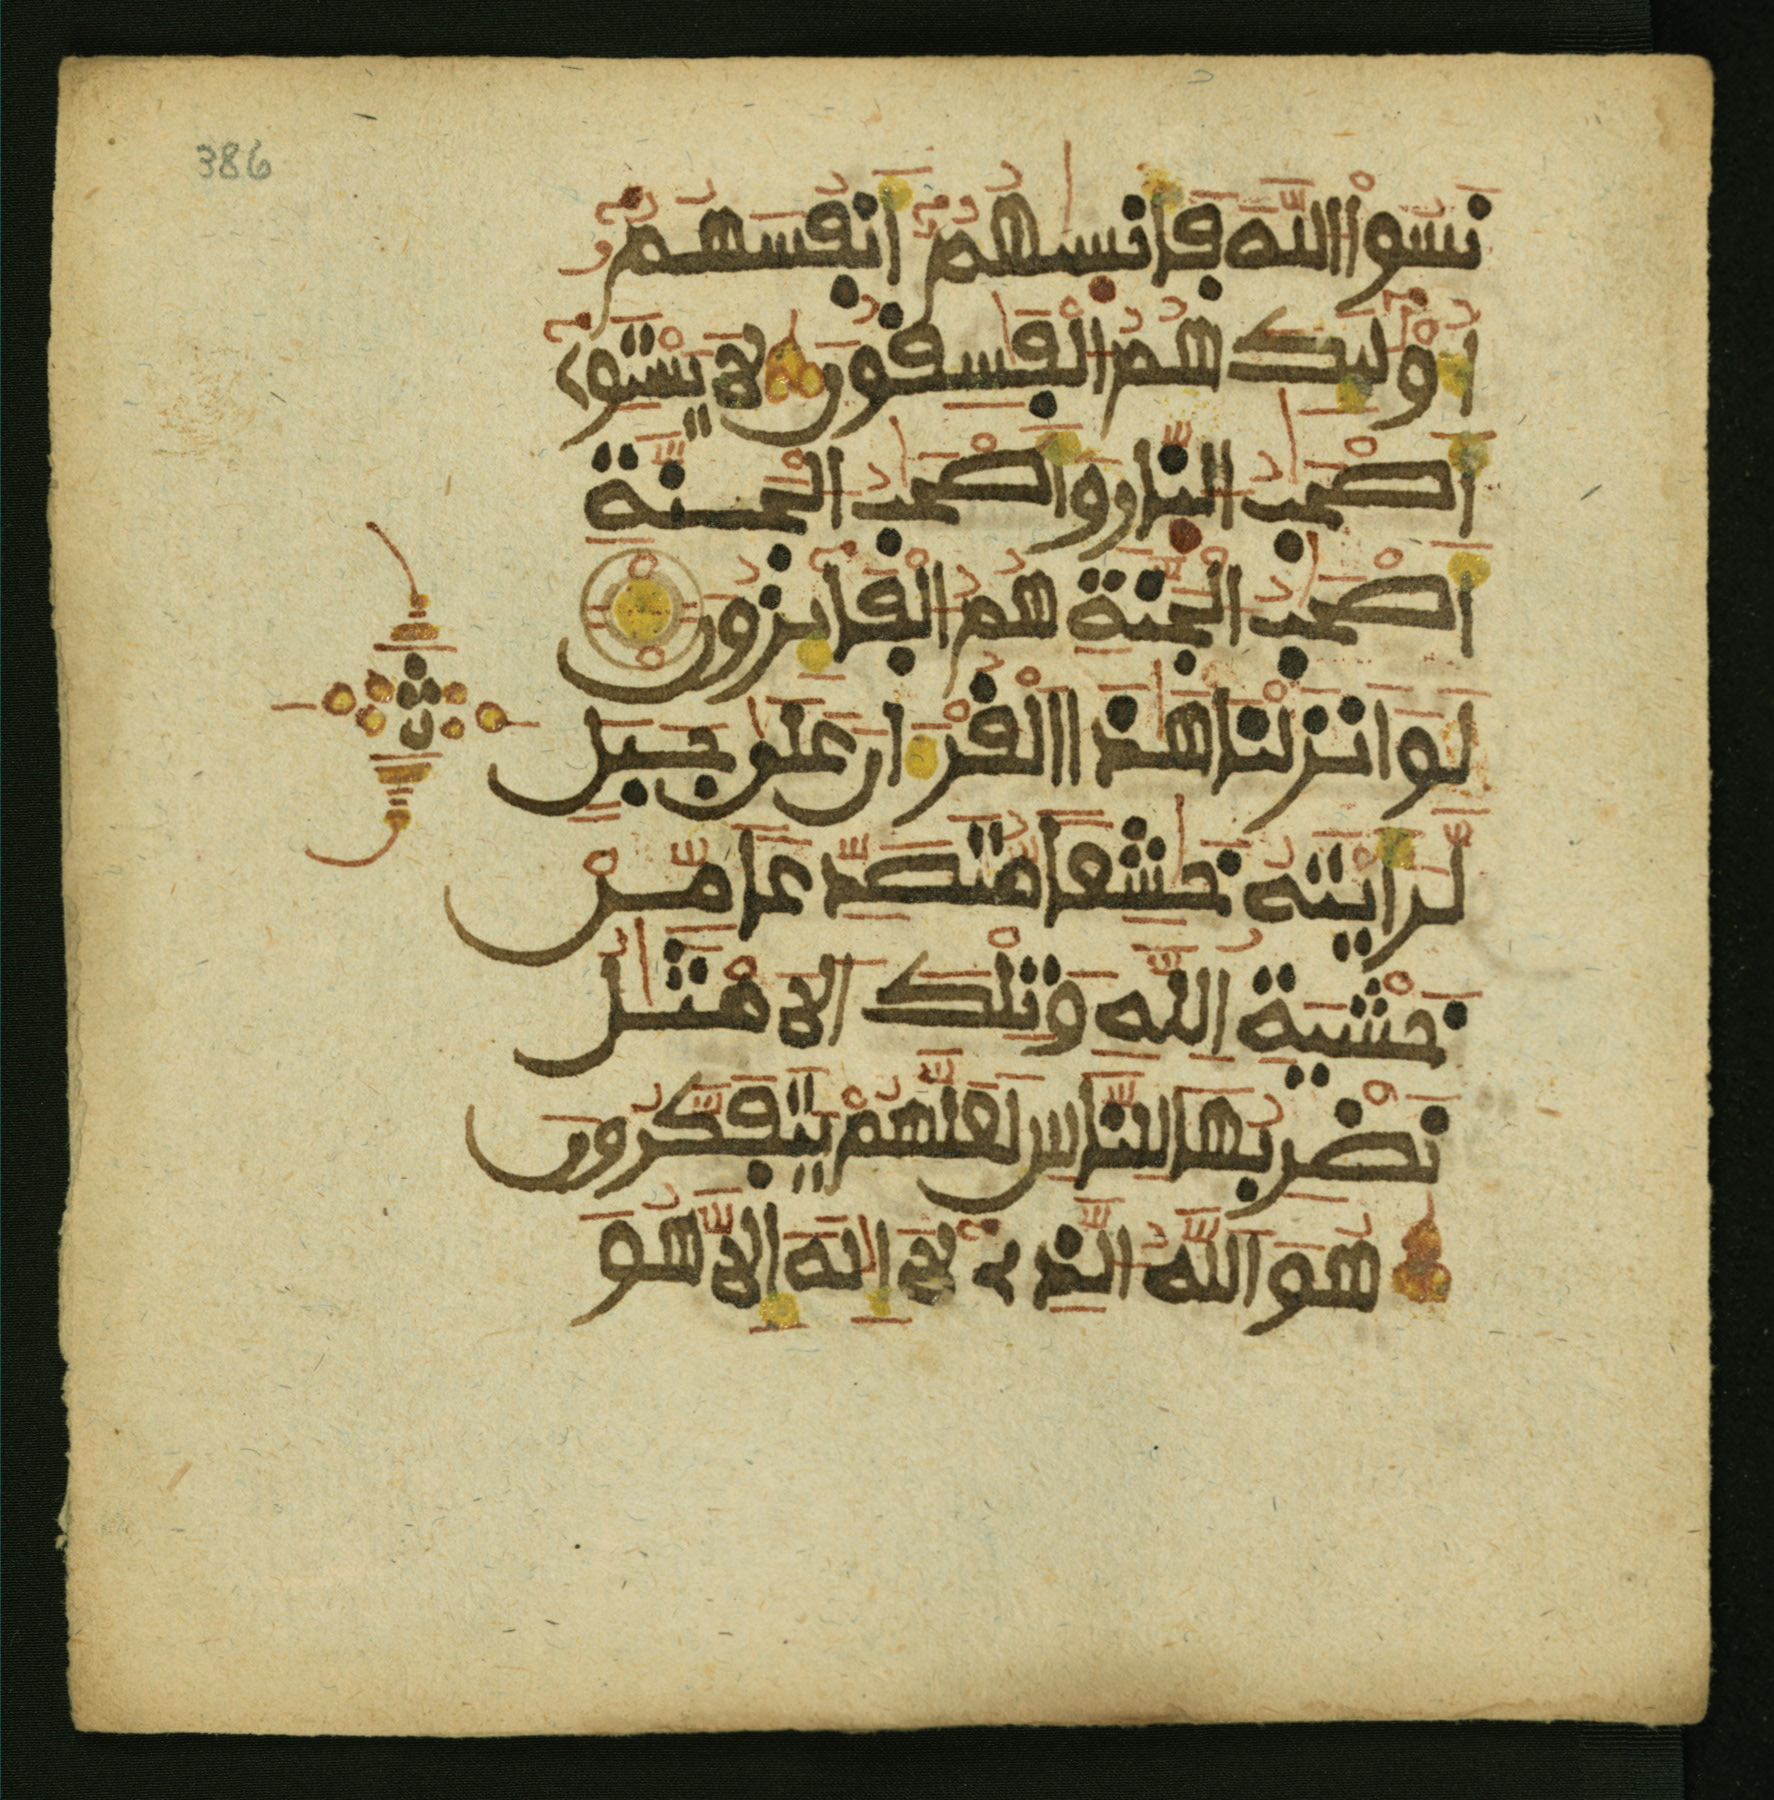 386
نَسُواْ اَللَّهَ فَأَنسَىٰهُمُۥٓ أَنفُسَهُمُۥٓ
أُوْلَٰٓئِكَ هُمُ اُلْفَٰسِقُونَ لَا يَسْتَوِےٓ
أَصْحَٰبُ اُلنّ۪ارِ وَأَصْحَٰبُ اُلْجَنَّةِ
أَصْحَٰبُ اُلْجَنَّةِ هُمُ اُلْفَآئِزُونَ
لَوَ اَنزَلْنَا هَٰذَا اَلْقُرْءَانَ عَلَىٰ جَبَلٍ
لَّرَأَيْتَهُۥ خَٰشِعاً مُّتَصَدِّعاً مِّنْ
خَشْيَةِ اِللَّهِ وَتِلْكَ اَلَامْثَٰلُ
نَضْرِبُهَا لِلنَّاسِ لَعَلَّهُمْ يَتَفَكَّرُونَ
هُوَ اَللَّهُ اُلذِے لَآ إِلَٰهَ إِلَّا هُوَ
ثمن